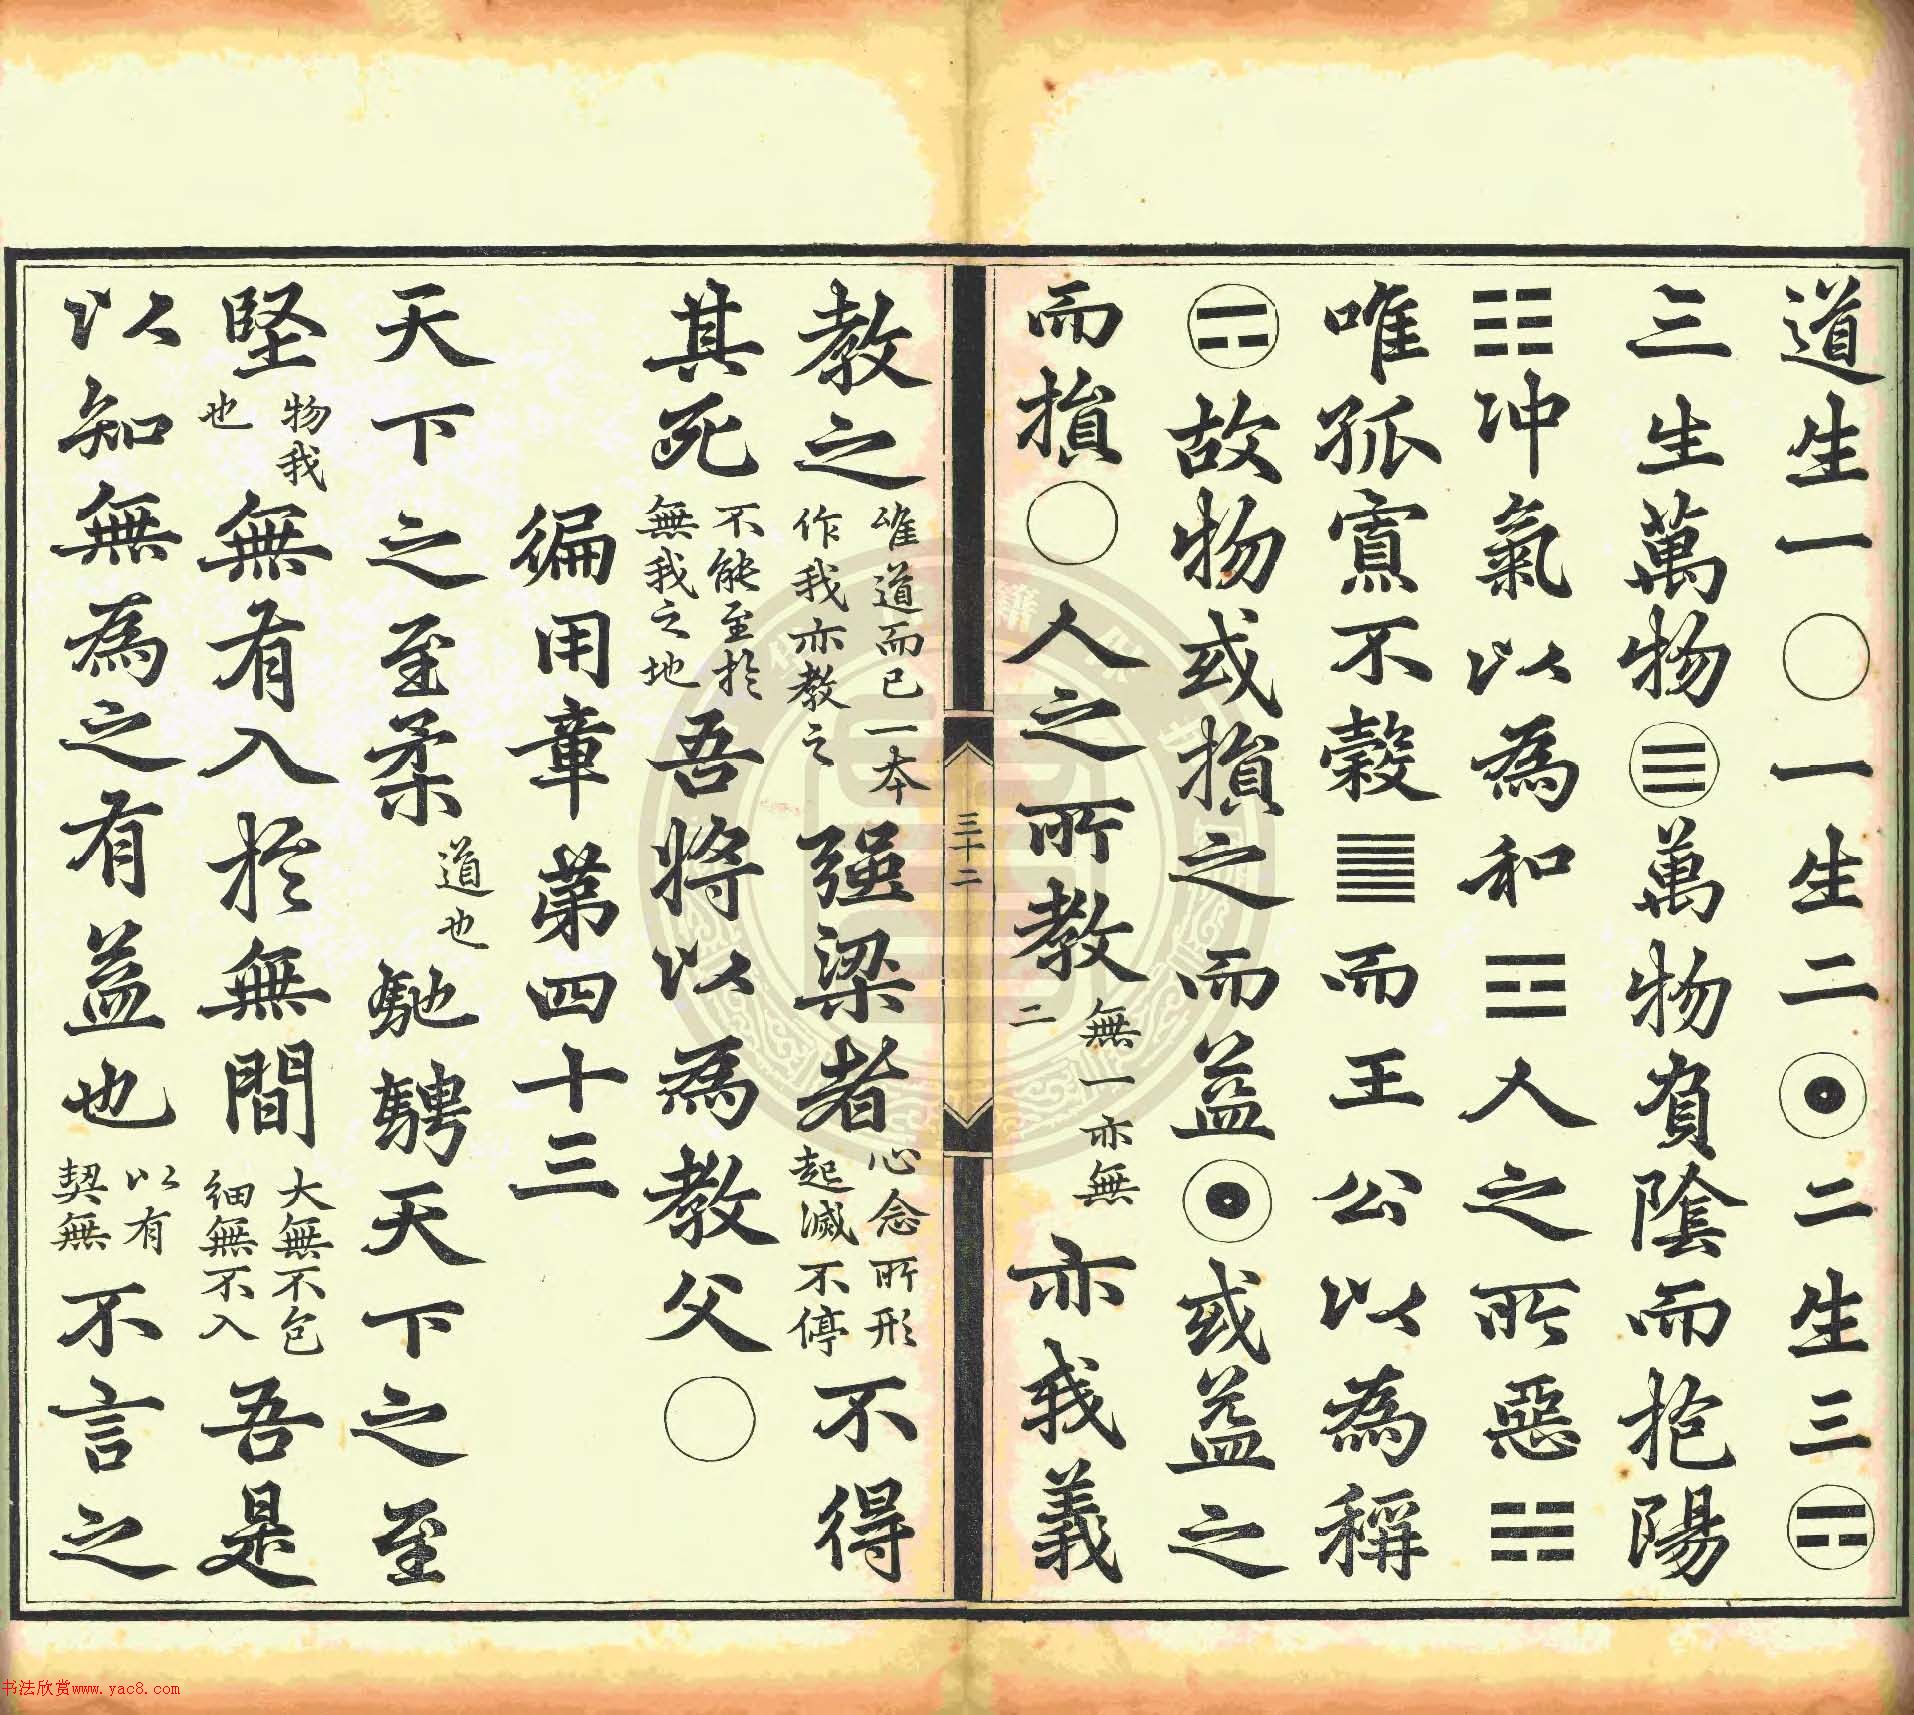 道生一〇一生二☉二生三
三生萬物萬物負陰而抱陽
冲氣以為和人之所惡
唯孤寡不穀而王公以為稱
故物或損之而益☉或益之
而損〇人之所教無一亦無二亦我義
三十二
教之唯道而已一本作我亦教之强梁者心念所形起滅不停不得
其死不能至於無我之地吾將以為教父〇
徧用章第四十三
天下之至柔道也馳騁天下之至
堅物我也無有入於無間大無不包細無不入吾是
以知無為之有益也以有契無不言之
书法欣赏www.yac8.com